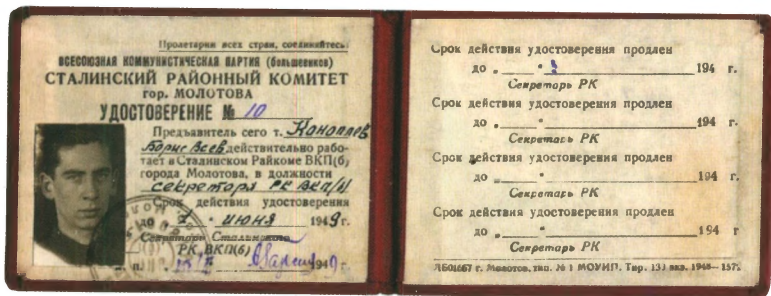 Пролетарии всех стран, соединяйтесь!
ВСЕСОЮЗНАЯ КОММУНИСТИЧЕСКАЯ ПАРТИЯ (большевиков)
СТАЛИНСКИЙ РАЙОННЫЙ КОМИТЕТ
гор. МОЛОТОВА
УДОСТОВЕРЕНИЕ № 10
Предъявитель сего т. Коноплев
Борис Всев. действительно рабо-
тает в Сталинском Райкоме ВКП(б)
города Молотова, в должности
секретаря РК ВКП(б)
Срок действия удостоверения
до 1 • июня 1949 г.
Секретарь Сталинского
РК ВКП(б)
м. п. 1949 г.
Срок действия удостоверения продлен
до „ “ 194 г.
Секретарь РК
Срок действия удостоверения продлен
до „ “ 194 г.
Секретарь РК
Срок действия удостоверения продлен
до „ “ 194 г.
Секретарь РК
Срок действия удостоверения продлен
до „ “ 194 г.
Секретарь РК
г. Молотов, тип. № 1 МОУНП. Тир. экз. 1948—